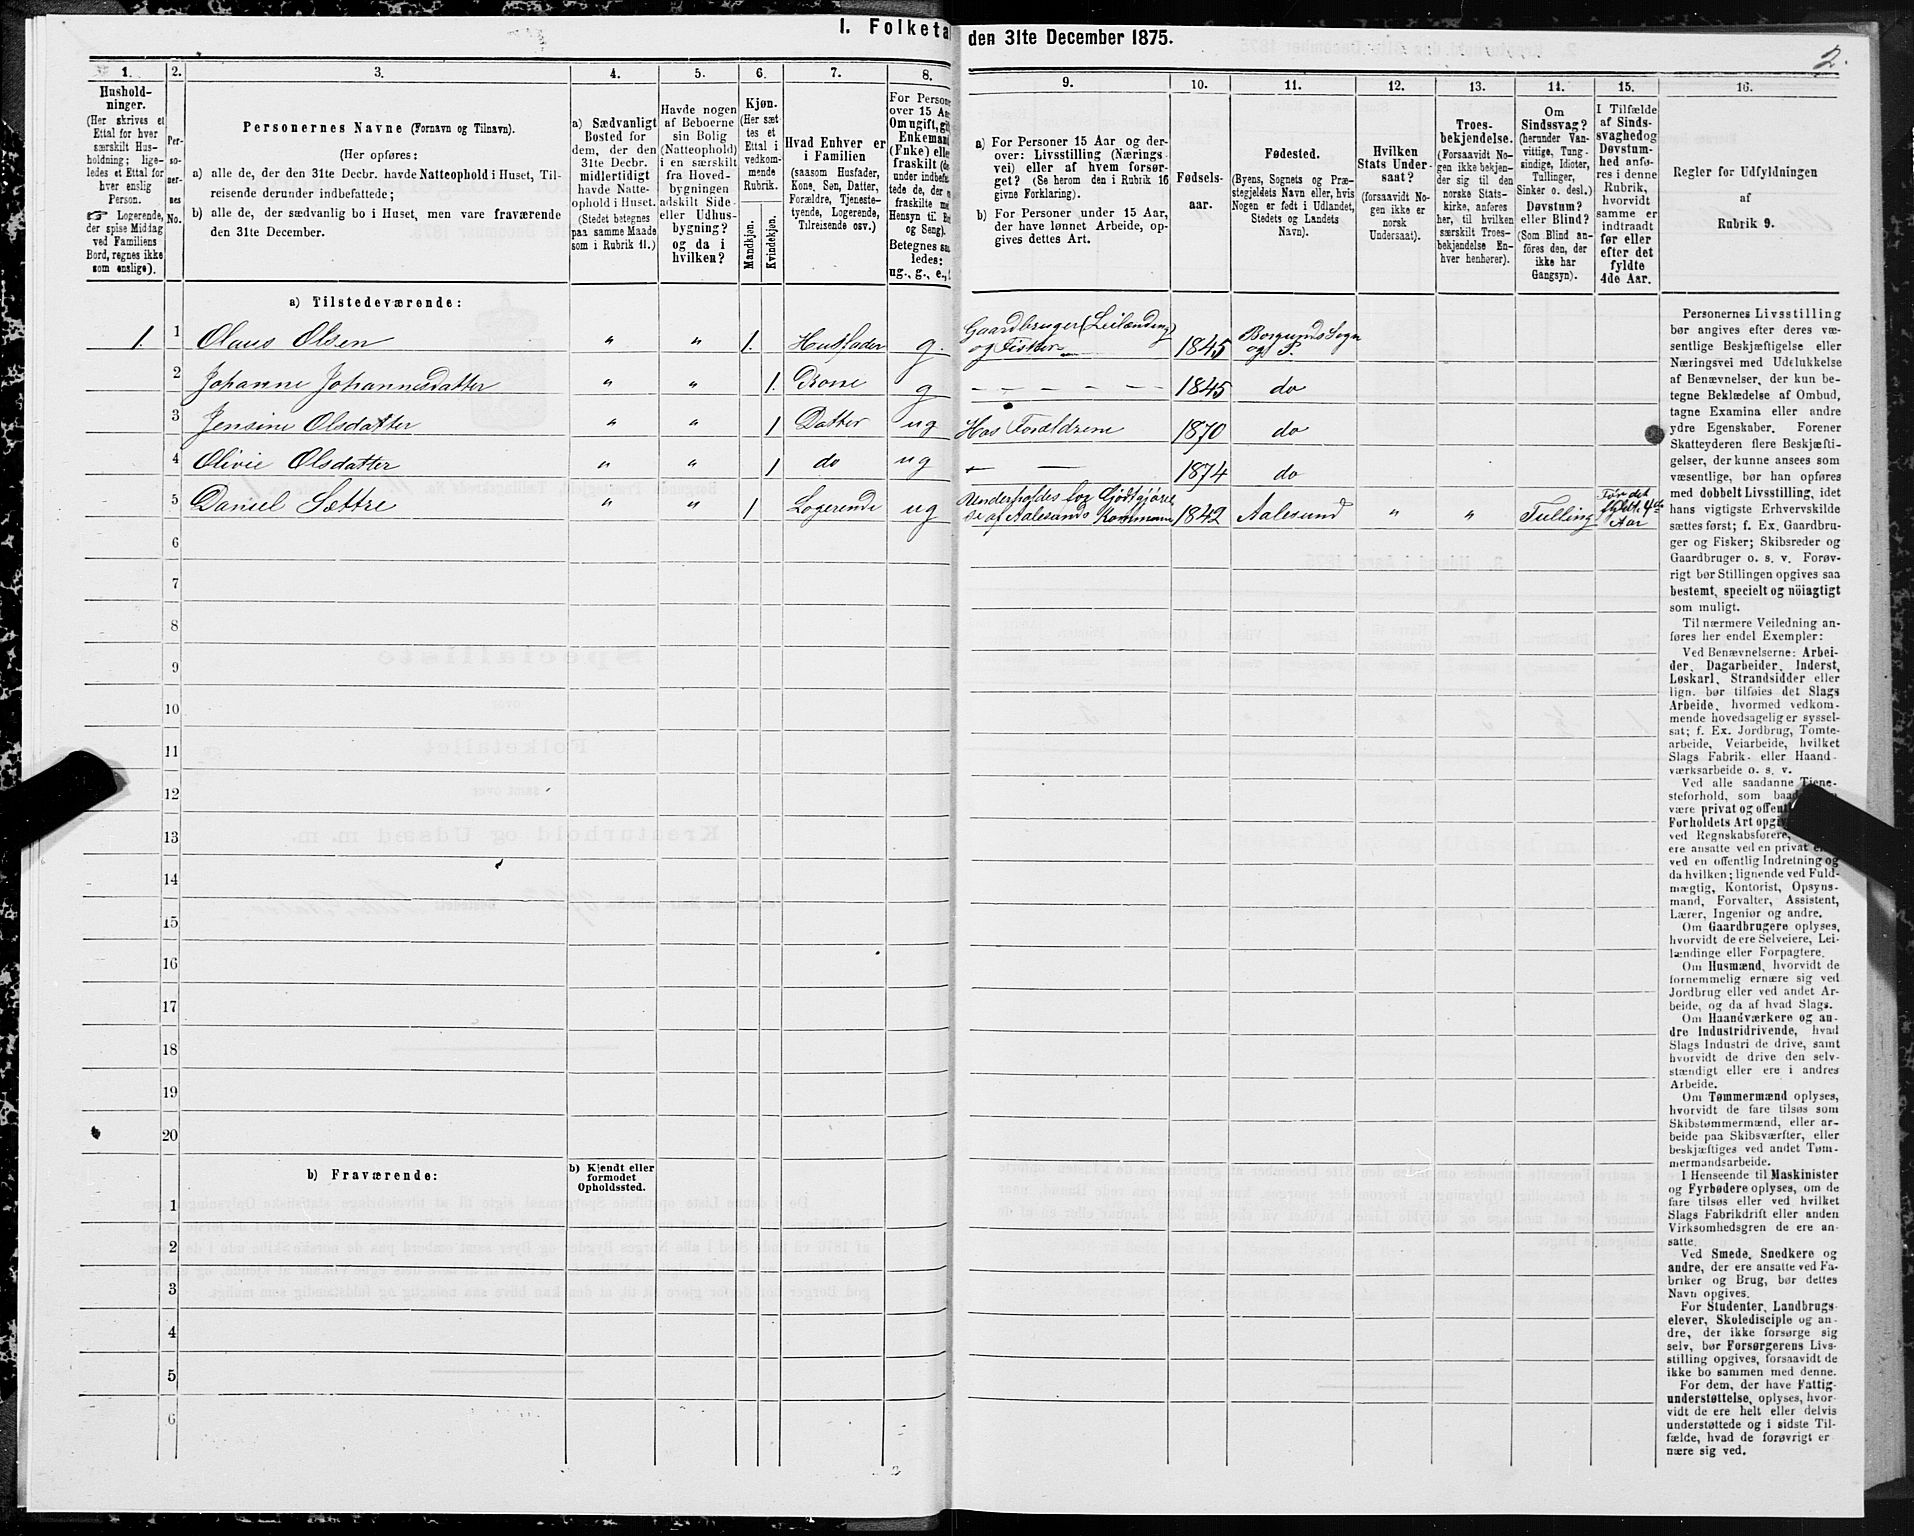 I. Folketa
den 31te December 1875.
2.
1.
2.
3.
4.
5.
6.
7.
8.
9.
10.
11.
12.
13.
14.
15.
16.
Hushold-
ninger.
(Her skrives et
Ettal for hver
særskilt Hus-
holdning; lige-
ledes et Ettal for
hver enslig
Person.
☞ Logerende,
der spise Middag
ved Familiens
Bord, regnes ikke
som enslige).
Per-
so-
ner-
nes
No.
Personernes Navne (Fornavn og Tilnavn).
(Her opføres:
a) alle de, der den 31te Decbr. havde Natteophold i Huset, Til-
reisende derunder indbefattede;
b) alle de, der sædvanlig bo i Huset, men vare fraværende
den 31te December.
a) Sædvanligt
Bosted for
dem, der den
31te Decbr.
midlertidigt
havde Natte-
ophold i Huset.
(Stedet betegnes
paa samme Maade
som i Rubrik 11.)
Havde nogen
af Beboerne
sin Bolig
(Natteophold)
i en særskilt
fra Hoved-
bygningen
adskilt Side-
eller Udhus-
bygning?
og da i
hvilken?
Kjøn.
(Her sæt-
tes et
Ettal i
vedkom-
mende
Rubrik.
Mandkjøn.
Kvindekjøn.
Hvad Enhver er
i Familien
(saasom Husfader,
Kone, Søn, Datter,
Forældre, Tjeneste-
tyende, Logerende,
Tilreisende osv.)
For Persone
over 15 Aa
Om ugift, gif
Enkemand
(Enke) elle
fraskilt (de
under indbefat-
tede de, der e
fraskilte me
Hensyn til Bo
og Seng).
Betegnes saa
ledes:
ug., g., e.,
a) For Personer 15 Aar og der-
over: Livsstilling (Nærings-
vei) eller af hvem forsør-
get? (Se herom den i Rubrik 16
givne Forklaring).
b) For Personer under 15 Aar,
der have lønnet Arbeide, op-
gives dettes Art.
Fødsels-
aar.
Fødested.
(Byens, Sognets og Præ-
stegjeldets Navn eller, hvis
Nogen er født i Udlandet,
Stedets og Landets
Navn).
Hvilken
Stats Under-
saat?
(forsaavidt No-
gen ikke er
norsk
Undersaat).
Troes-
bekjendelse.
(Forsaavidt No-
gen ikke bekjen-
der sig til den
norske Stats-
kirke, anføres
her, til hvilken
særskilt Troes-
bekjendelse En-
hver henhører).
Om
Sindssvag?
(herunder Van-
vittige, Tung-
sindige, Idioter,
Tullinger,
Sinker o. desl.)
Døvstum?
eller Blind?
(Som Blind an-
føres den, der
ikke har
Gangsyn).
I Tilfælde
af Sinds-
svaghedog
Døvstum-
hed anfø-
res i denne
Rubrik,
hvorvidt
samme er
indtraadt
før eller
efter det
fyldte
4de Aar.
Regler for Udfyldningen
af
Rubrik 9.
a) Tilstedeværende:
1. 1 Olaus Olsen " " 1. Husfader g. Gaardbruger (Leilænding) og Fisker 1845 Borgunds Sogn og P.
2 Johanne Johannesdatter " " 1. Kone g - - - - - 1845 do
3 Jensine Olsdatter " " 1 Datter ug Hos Foreldrene 1870 do
4 Olivie Olsdatter " " 1 do ug - - 1874 do
5 Daniel Sættre " " 1 Logerende ug af Aalesunds Kommune 1842 Aalesund " " Tulling Før det fyldte 4de Aar
6
7
8
9
10
11
12
13
14
15
16
17
18
19
20
b) Fraværende:
b) Kjendt eller
formodet
Opholdssted.
1
2
3
4
5
6
Personernes Livsstilling
bør angives efter deres væ-
sentlige Beskjæftigelse eller
Næringsvei med Udelukkelse
af Benævnelser, der kun be-
tegne Beklædelse af Ombud,
tagne Examina eller andre
ydre Egenskaber. Forener
Skatteyderen flere Beskjæfti-
gelser, der kunne ansees som
væsentlige, bør han opføres
med dobbelt Livsstilling, idet
hans vigtigste Erhvervskilde
sættes først; f. Ex. Gaardbru-
ger og Fisker; Skibsreder og
Gaardbruger o. s. v. Forøv-
rigt bør Stillingen opgives saa
bestemt, specielt og nöiagtigt
som muligt.
Til nærmere Veiledning an-
føres her endel Exempler:
Ved Benævnelserne: Arbei-
der, Dagarbeider, Inderst,
Løskarl, Strandsidder eller
lign. bør tilføies det Slags
Arbeide, hvormed vedkom-
mende hovedsagelig er syssel-
sat; f. Ex. Jordbrug, Tomte-
arbeide, Veiarbeide, hvilket
Slags Fabrik- eller Haand-
værksarbeide o. s. v.
Ved alle saadanne Tjene-
steforhold, som baa
være privat og offent
Forholdets Art opgiv
ved Regnskabsførere,
ere ansatte ved en privat e
ved en offentlig Indretning og
da hvilken; lignende ved Fuld-
mægtig, Kontorist, Opsyns-
mand, Forvalter, Assistent,
Lærer, Ingeniør og andre.
Om Gaardbrugere oplyses,
hvorvidt de ere Selveiere, Lei-
lændinge eller Forpagtere.
Om Husmænd, hvorvidt de
fornemmelig ernære sig ved
Jordbrug eller ved andet Ar-
beide, og da af hvad Slags.
Om Haandværkere og an-
dre Industridrivende, hvad
Slags Industri de drive, samt
hvorvidt de drive den selv-
stændigt eller ere i andres
Arbeide.
Om Tømmermænd oplyses,
hvorvidt de fare tilsøs som
Skibstømmermænd, eller ar-
beide paa Skibsværfter, eller
beskjæftiges ved andet Tøm-
mermandsarbeide.
I Henseende til Maskinister
og Fyrbødere oplyses, om de
fare tilsøs eller ved hvilket
Slags Fabrikdrift eller anden
Virksomhedsgren de ere an-
satte.
Ved Smede, Snedkere og
andre, der ere ansatte ved Fa-
briker og Brug, bør dettes
Navn opgives.
For Studenter, Landbrugs-
elever, Skoledisciple og an-
dre, der ikke forsørge sig
selv, bør Forsørgerens Livs-
stilling opgives, forsaavidt de
ikke bo sammen med denne.
For dem, der have Fattig-
understøttelse, oplyses, hvor-
vidt de ere helt eller delvis
understøttede og i sidste Til-
fælde, hvad de forøvrigt er-
nære sig ved.